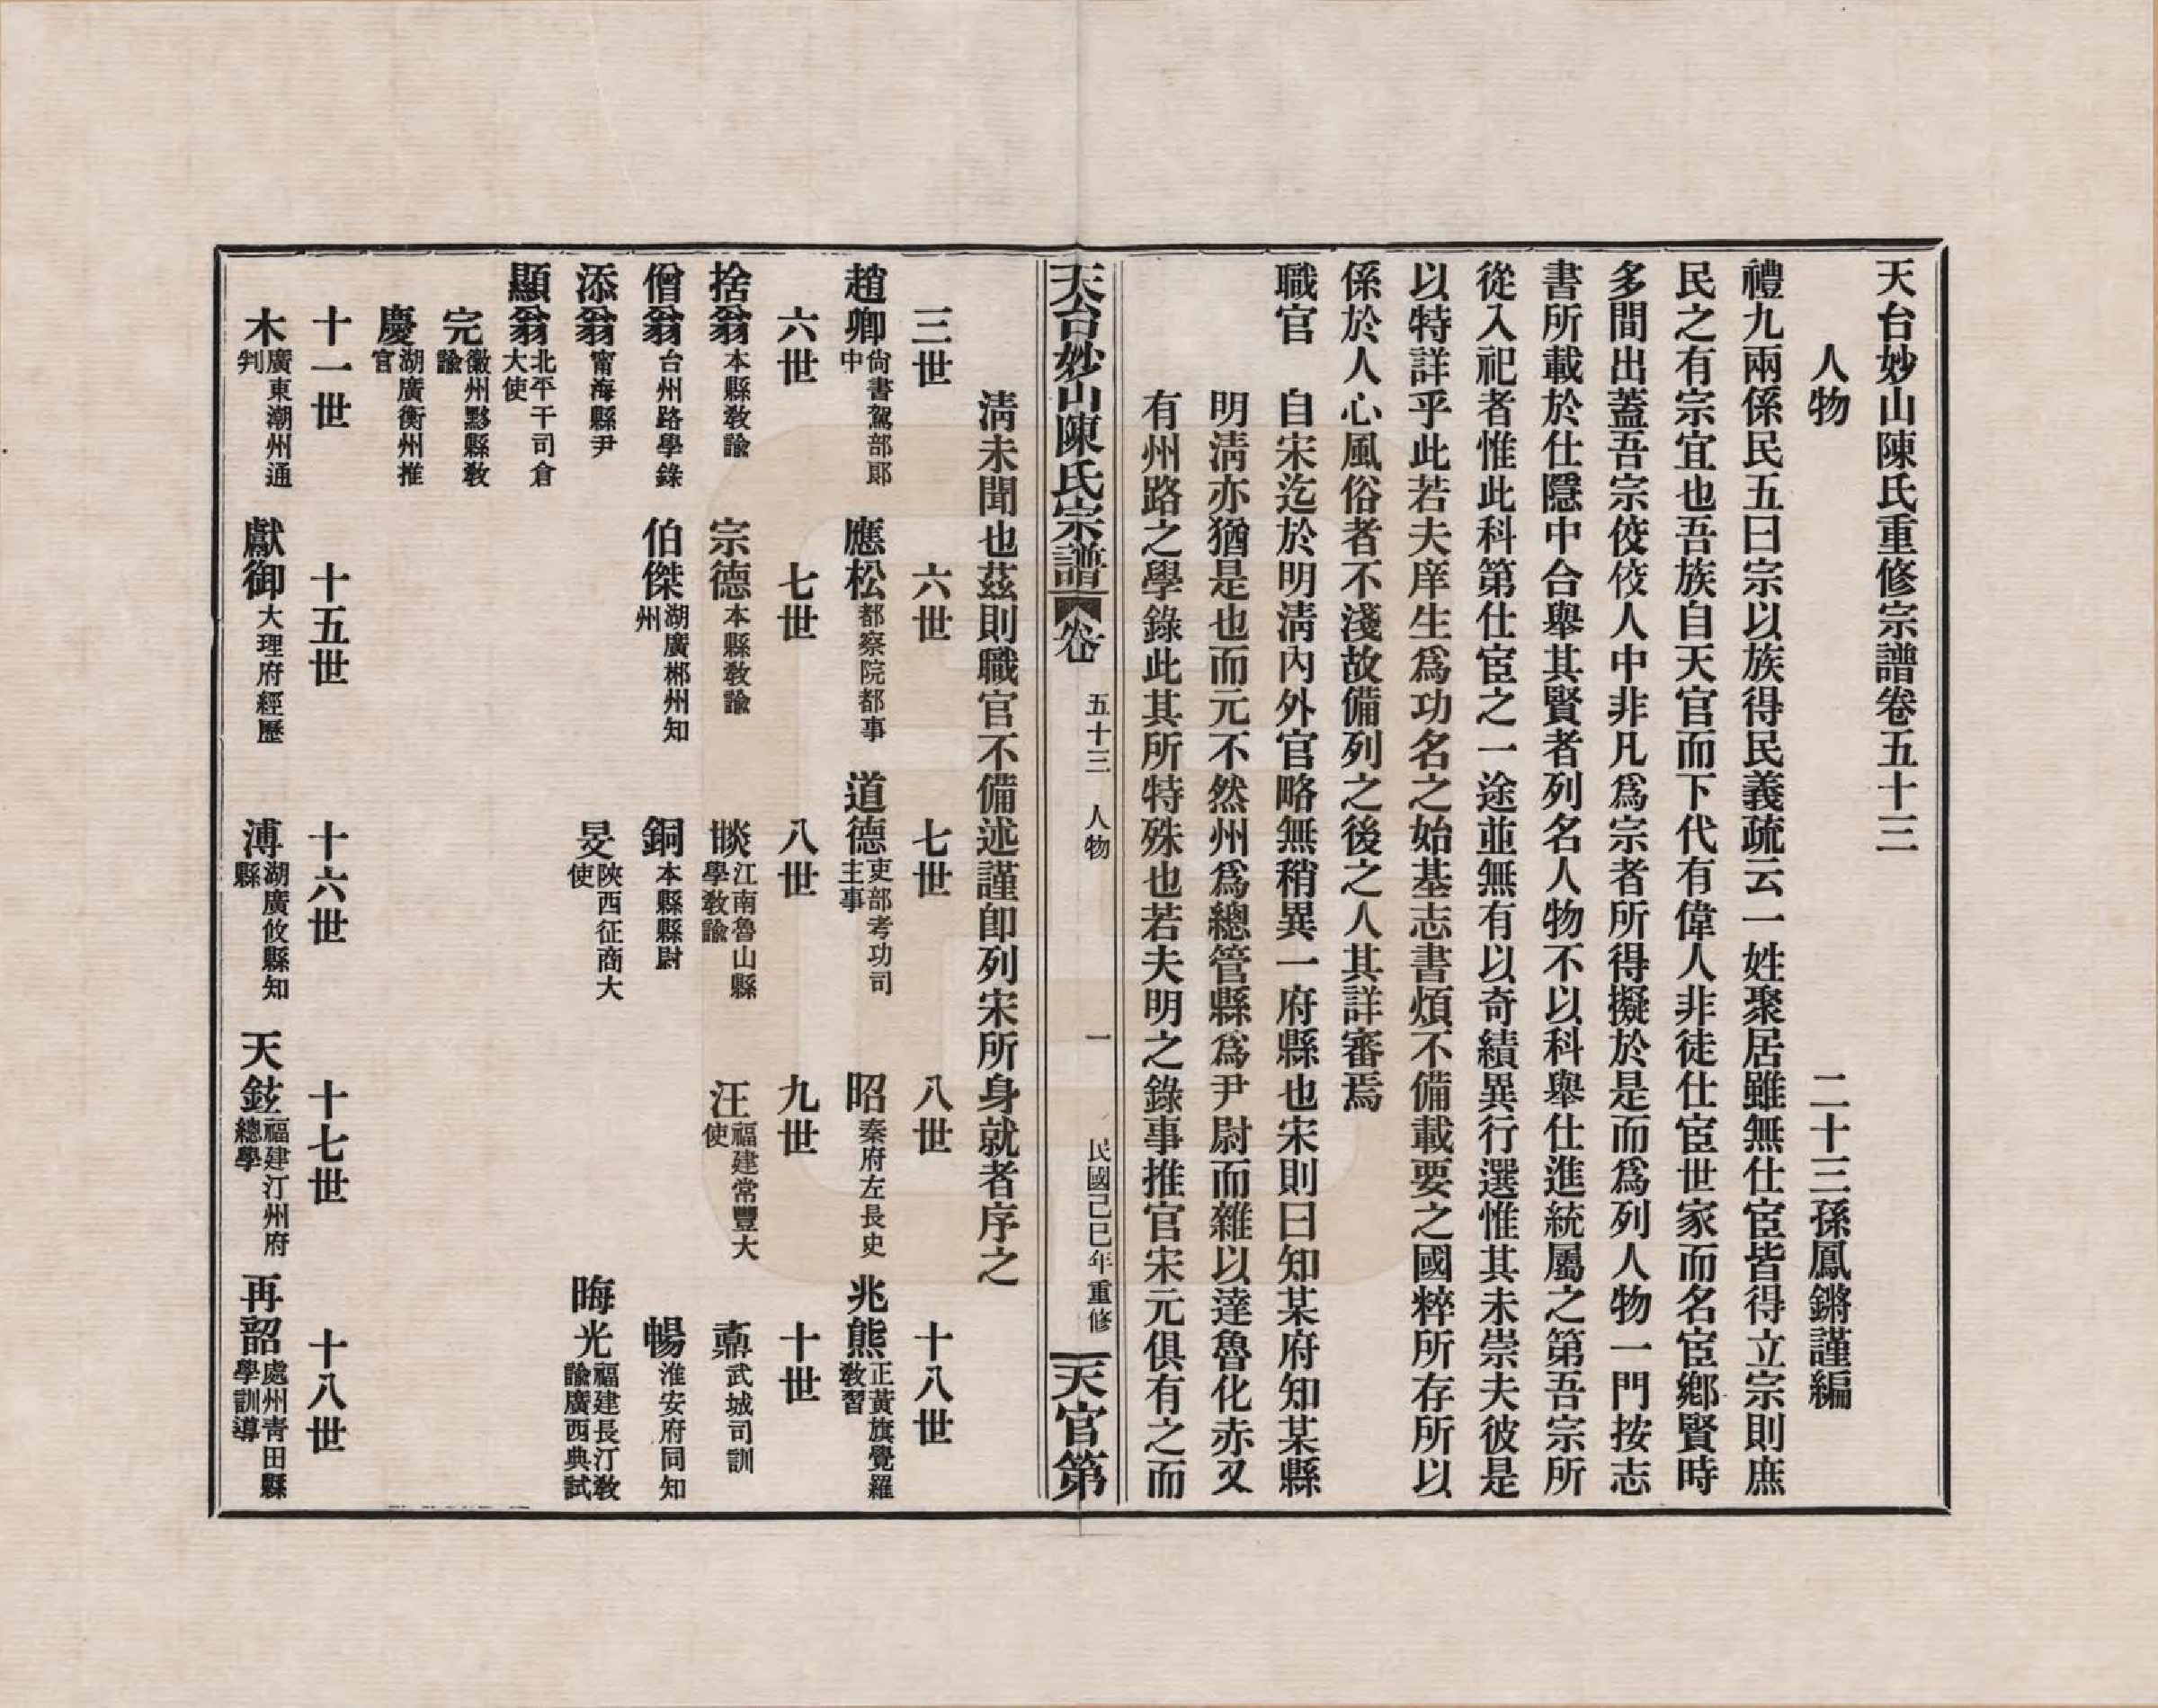 天台妙山陳氏重修宗譜卷五十三
人物
二十三孫鳳鏘謹編
禮九兩係民五曰宗以族得民義疏云一姓聚居雖無仕宦皆得立宗則庶
民之有宗宜也吾族自天官而下代有偉人非徒仕宦世家而名宦鄉賢時
多間出蓋吾宗佼佼人中非凡爲宗者所得擬於是而爲列人物一門按志
書所載於仕隱中合舉其賢者列名人物不以科舉仕進統屬之第吾宗所
從入祀者惟此科第仕宦之一途並無有以奇績異行選惟其未崇夫彼是
以特詳乎此若夫庠生爲功名之始基志書煩不備載要之國粹所存所以
係於人心風俗者不淺故備列之後之人其詳審焉
職官
自宋迄於明淸內外官略無稍異一府縣也宋則曰知某府知某縣
明淸亦猶是也而元不然州爲總管縣爲尹尉而雜以達魯化赤又
有州路之學錄此其所特殊也若夫明之錄事推官宋元俱有之而
天台妙山陳氏宗譜 卷 五十三 人物 一 民國己巳年重修 天官第
淸未聞也茲則職官不備述謹卽列宋所身就者序之
三世
六世
七世
八世
十八世
趙卿 尙書駕部郎中
應松 都察院都事
道德 吏部考功司主事
昭 秦府左長史
兆熊 正黃旗覺羅敎習
六世
七世
八世
九世
十世
捨翁 本縣敎諭
宗德 本縣敎諭
江南魯山縣學敎諭
汪 福建常豐大使
武城司訓
僧翁 台州路學錄
伯傑 湖廣郴州知州
銅 本縣縣尉
暢 淮安府同知
添翁 甯海縣尹
旻 陝西征商大使
晦光 福建長汀敎諭廣西典試
顯翁 北平干司倉大使
完 徽州黟縣敎諭
慶 湖廣衡州推官
十一世
十五世
十六世
十七世
十八世
木 廣東潮州通判
獻御 大理府經歷
溥 湖廣攸縣知縣
天鉉 福建汀州府總學
再韶 處州靑田縣學訓導